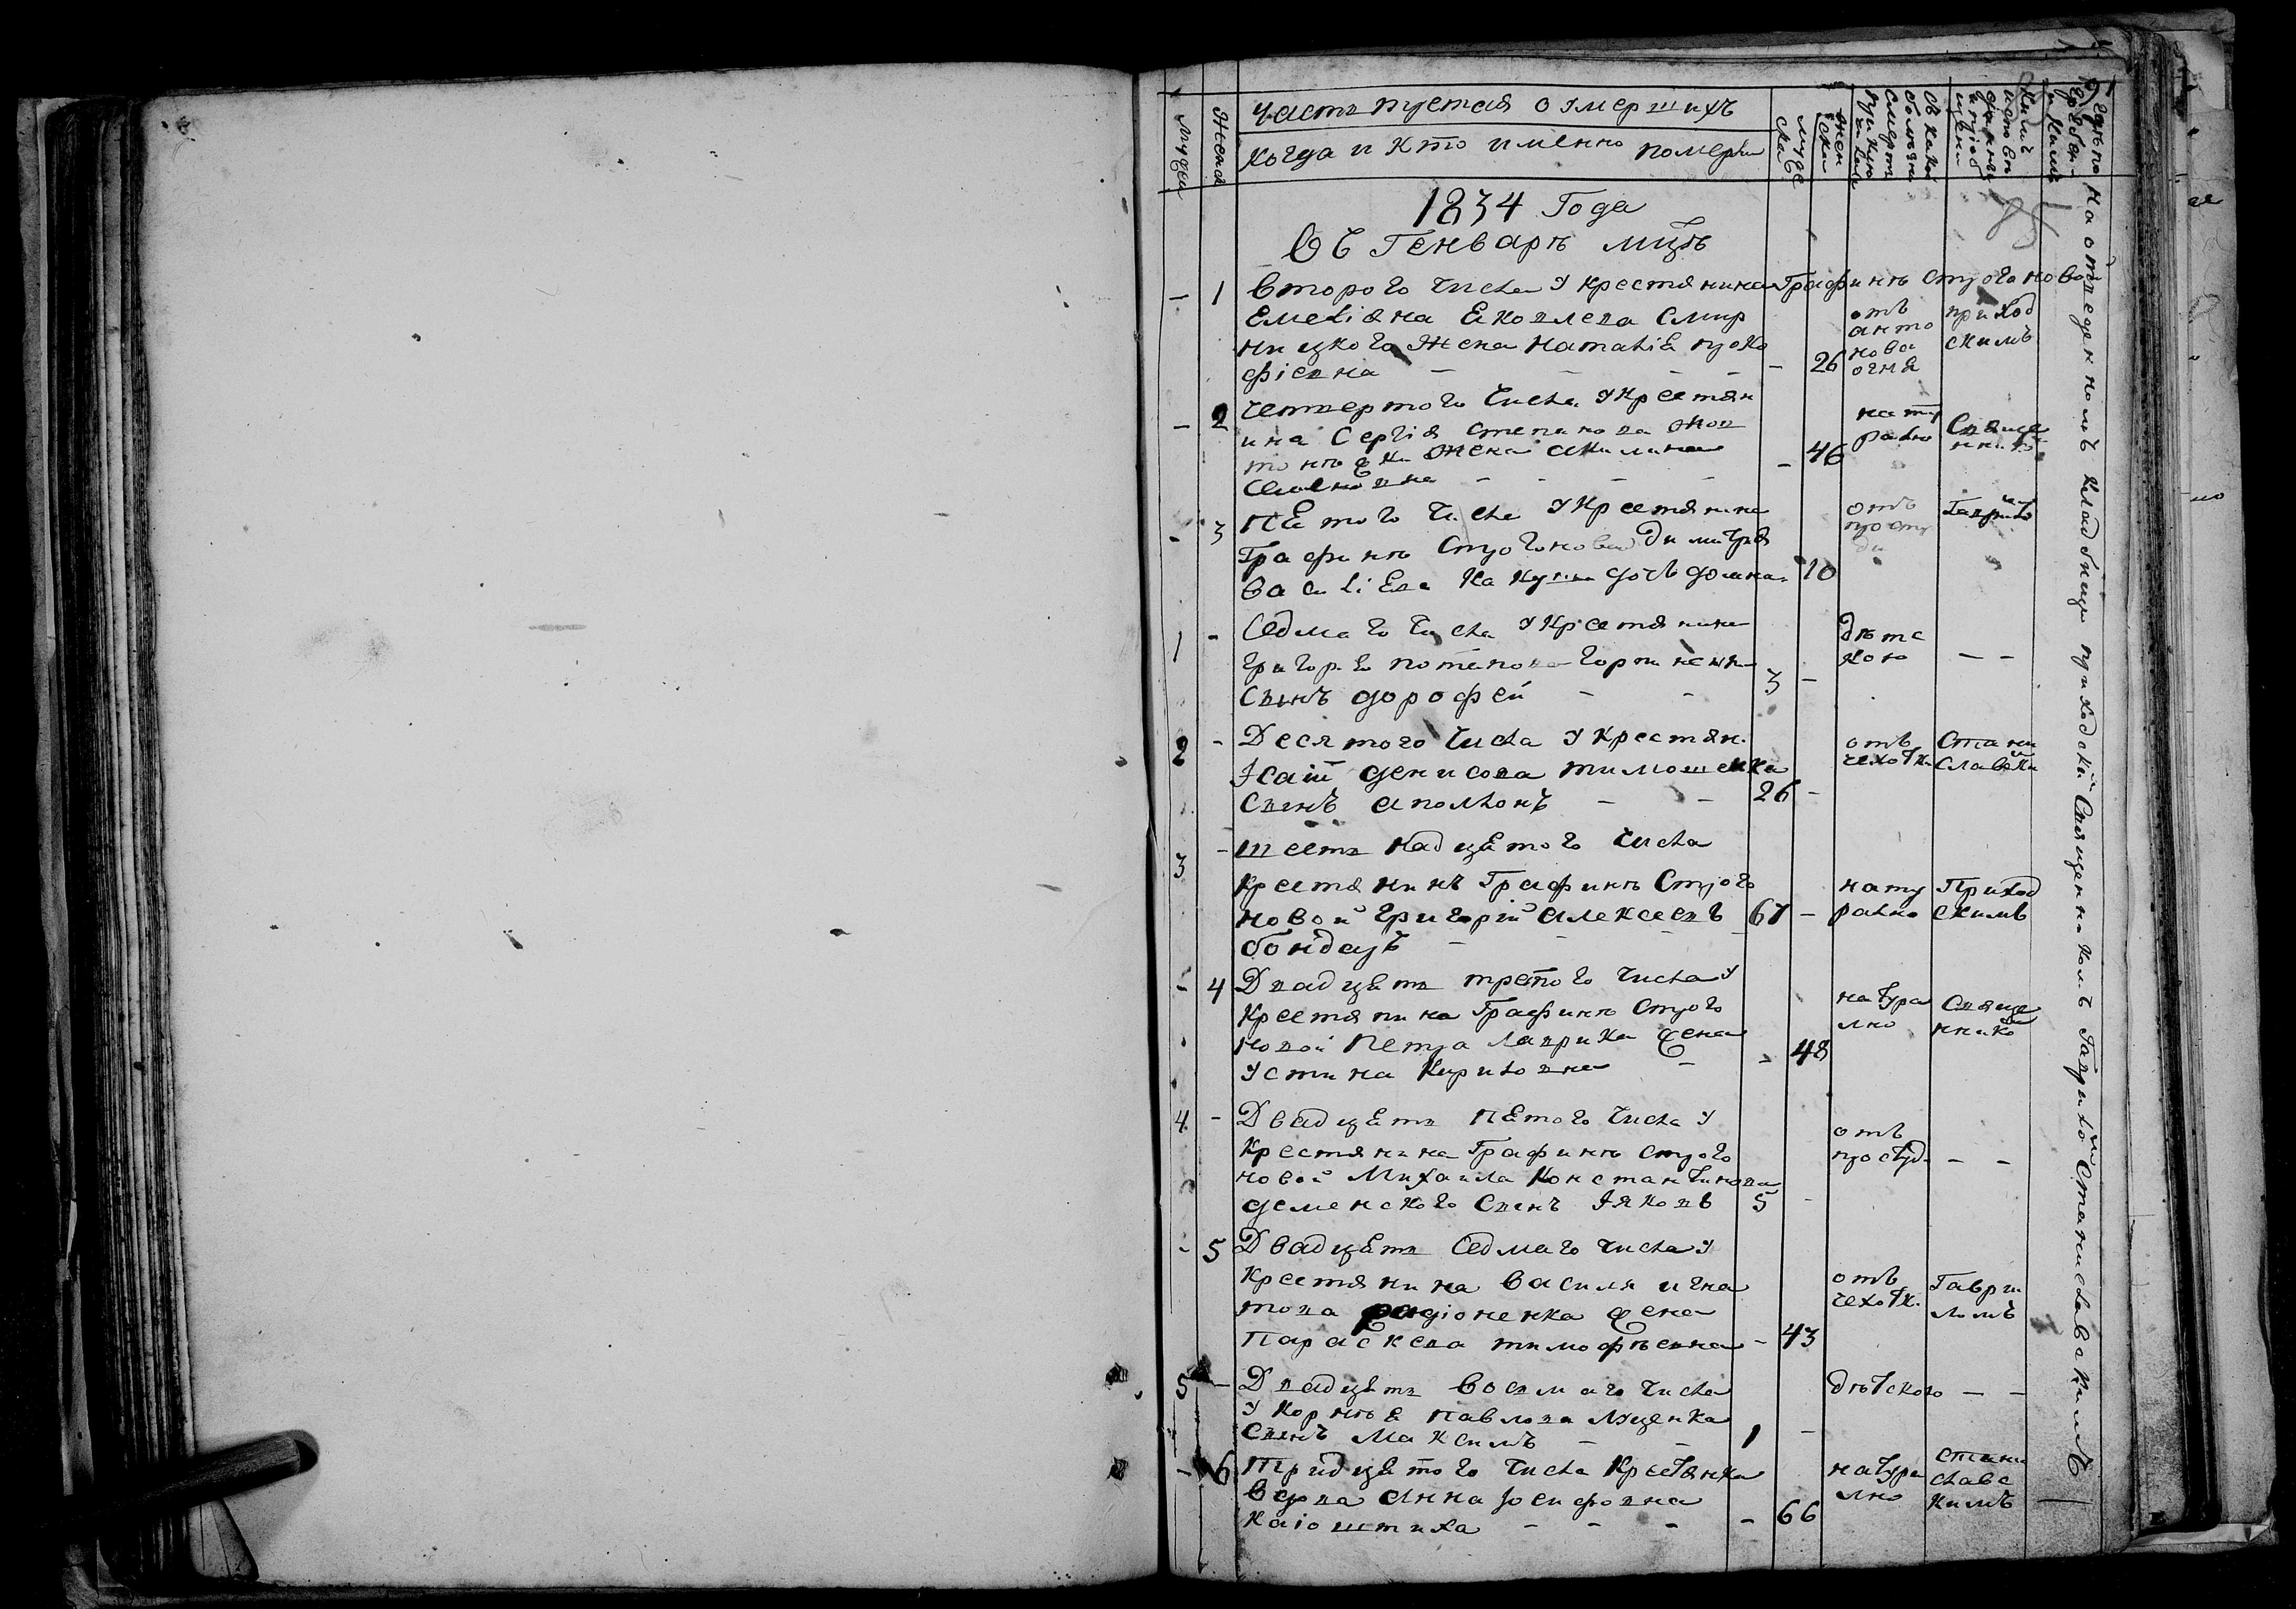 Часть третая о умершихъ
Мужеск
Женск
когда и кто именно померъ
мужеска
женска
1834 Года
Въ Генварѣ мцѣ
- 1 второго числа У крестянина Графинѣ Строгоновой
Емеліяна Яковлева Смир
ницкого Жена Наталія проко
фіевна - 26
отъ антонова огня
приходскимъ
- 2 Четвертого числа У Крестян
ина Сергія степанова Жов
Жена Акилина
Семеновна - 46
натурално
Священнико
- 3 Пятого числа У Крестянина
Графинѣ Строгоновой Димитрія
Василіева дочъ домна - 10
отъ просту
Гаврило
1 - Седмаго числа У Крестянина
Григорія потапова
Сынъ дорофей 3 -
дѣтскою - -
2 - Десятого числа У Крестян.
Ісаіи денисова тимошенка
Сынъ Аполлонъ 26 -
отъ чехотки
Станиславски
3 - шестнадцятого числа
Крестянинъ Графинѣ Строго
новой Григорій Алексеевъ 67 -
бондаръ
натурално
Приходскимъ
- 4 Двадцять третого числа У
Крестянина Графинѣ Строго
новой Петра Лаврика Жена
Устина Кириловна - 48
натурално
Священнико
4 - Двадцять Пятого числа У
Крестянина Графинѣ Строго
новой Михаила Константинова
деменского Сынъ Іяковъ 5 -
отъ простуд. - -
- 5 Двадцять Седмаго числа У
Крестянина Василя игна
това радіоненка Жена
Параскева тимофѣевна - 43
отъ чехотк.
Гавриломъ
5 - Двадцять восмаго числа
У Корнѣя павлова Луценка
Сынъ Максимъ 1 -
дѣтскою - -
- 6 Тридцятого числа Крестянка
вдова Анна Іосифовна
- 66
натурално
Станиславскимъ
На отведенномъ кладбищи приходскимъ Священникомъ Гавриломъ Станиславскимъ